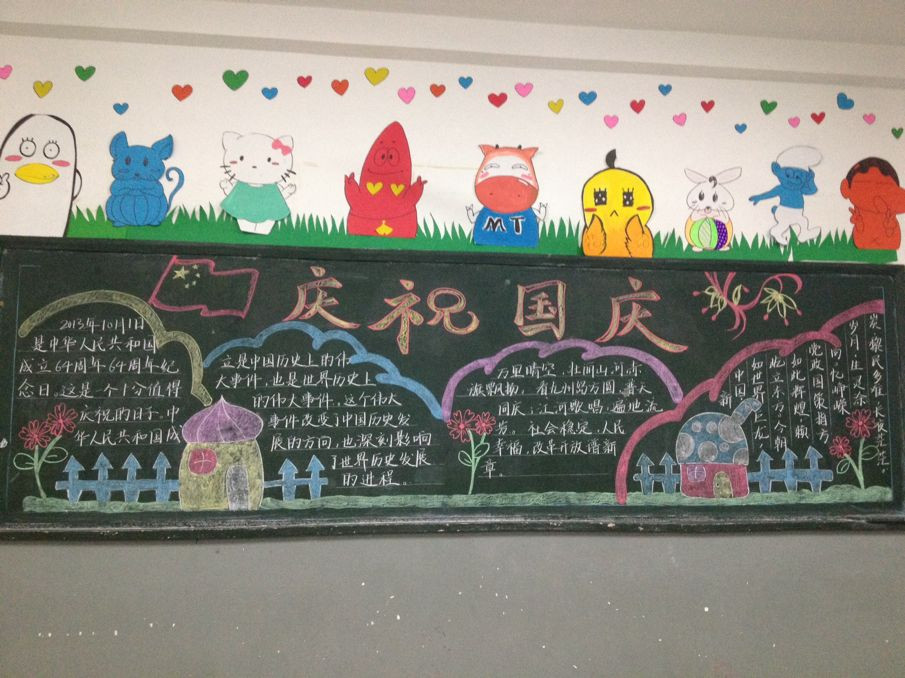 庆祝国庆
MT
2013年10月1日
是中华人民共和国
成立64周年64周年纪
念日,这是一个十分值得
庆祝的日子,中
华人民共和国成
立是中国历史上的伟
大事件,也是世界历史上
的伟大事件,这个伟大
事件改变了中国历史发
展的方向,也深刻影响
了世界历史发展
的进程。
万里晴空,壮丽山河赤
旗飘扬,看九州岛方圆,普天
同庆;江河欢唱,遍地流
芳。社会稳定,人民
幸福,改革开放谱新
章
炎黎民多难
岁月
同忆峥嵘
党政国策指方
如此辉煌
屹立东方今朝
如世界
中国
新